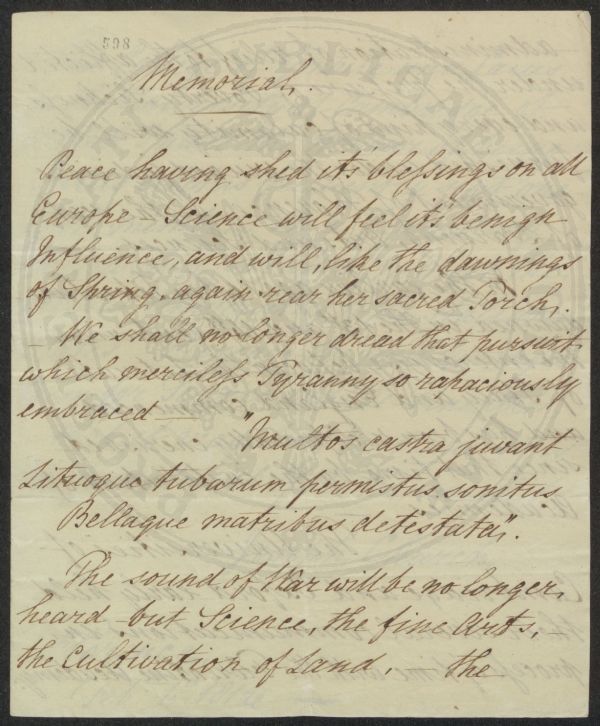 598
Memorial.
Peace having shed it's blessings on all
Europe - Science will feel it's benign
Influence, and will, like the dawnings
of Spring, again rear her sacred Torch.
- We shall no longer dread that pursuit
which merciless Tyranny so rapaciously
embraced — "Multos castra juvant
Lituoque tubarum permistus sonitus
Bellaque matribus detestata".
The sound of War will be no longer
heard - but Science, the fine Arts, -
the Cultivation of Land, - the